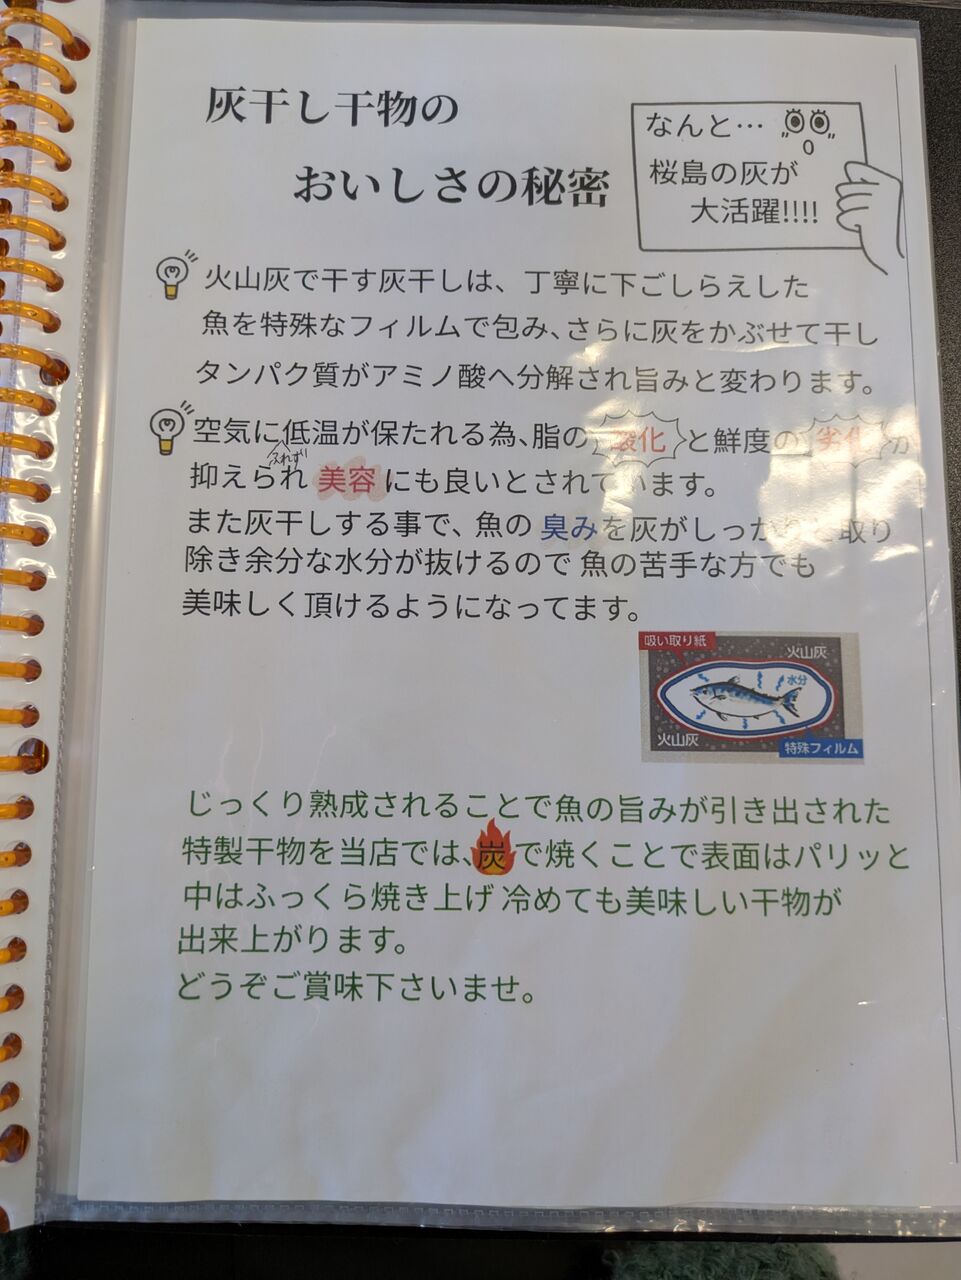 灰干し干物の
おいしさの秘密
なんと…
桜島の灰が
大活躍!!!!
火山灰で干す灰干しは、丁寧に下ごしらえした
魚を特殊なフィルムで包み、さらに灰をかぶせて干し
タンパク質がアミノ酸へ分解され旨みと変わります。
空気に低温が保たれる為、脂の酸化と鮮度の劣化が
ふれず
抑えられ 美容にも良いとされています。
また灰干しする事で、魚の 臭みを灰がしっかりと取り
除き余分な水分が抜けるので 魚の苦手な方でも
美味しく頂けるようになってます。
吸い取り紙
火山灰
水分
火山灰
特殊フィルム
じっくり熟成されることで魚の旨みが引き出された
特製干物を当店では、炭で焼くことで表面はパリッと
中はふっくら焼き上げ 冷めても美味しい干物が
出来上がります。
どうぞご賞味下さいませ。